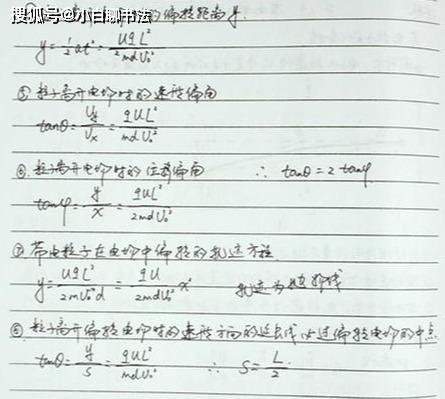 搜狐号@小白聊书法的偏转距离y.
y=½at²=qUL²/2mdV₀²
⑤粒子离开电场时的速度偏角
tanθ=Vy/Vx=qUL/mdV₀²
⑥.粒子离开电场时的位移偏角 ∴ tanθ=2tanφ
tanφ=y/x=qUL/2mdV₀²
⑦带电粒子在电场中偏转的轨迹方程
y=UqL²/2mV₀²d=qU/2mdV₀² x² 轨迹为抛物线
⑧.粒子离开偏转电场时的速度方向的延长线必过偏转电场的中点
tanθ=y/s=qUL/mdV₀² ∴ S=L/2.